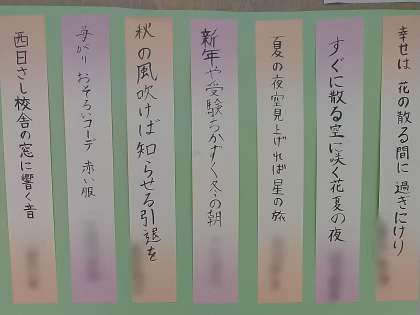 幸せは 花の散る間に 過ぎにけり
すぐに散る空に咲く花夏の夜
夏の夜空見上げれば星の旅
新年や受験ちかずく冬の朝
秋の風吹けば知らせる引退を
おそろいコーデ 赤い服
西日さし校舎の窓に響く音